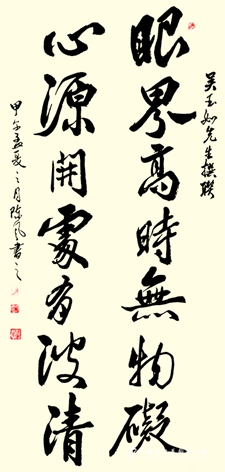 吴玉如先生撰联
眼界高時無物礙
心源開處有波清
甲午孟夏之月陈风書之